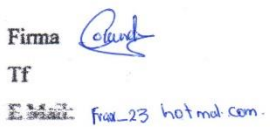 Firma
Tf
E Mail: Fran_23 hotmal.com.